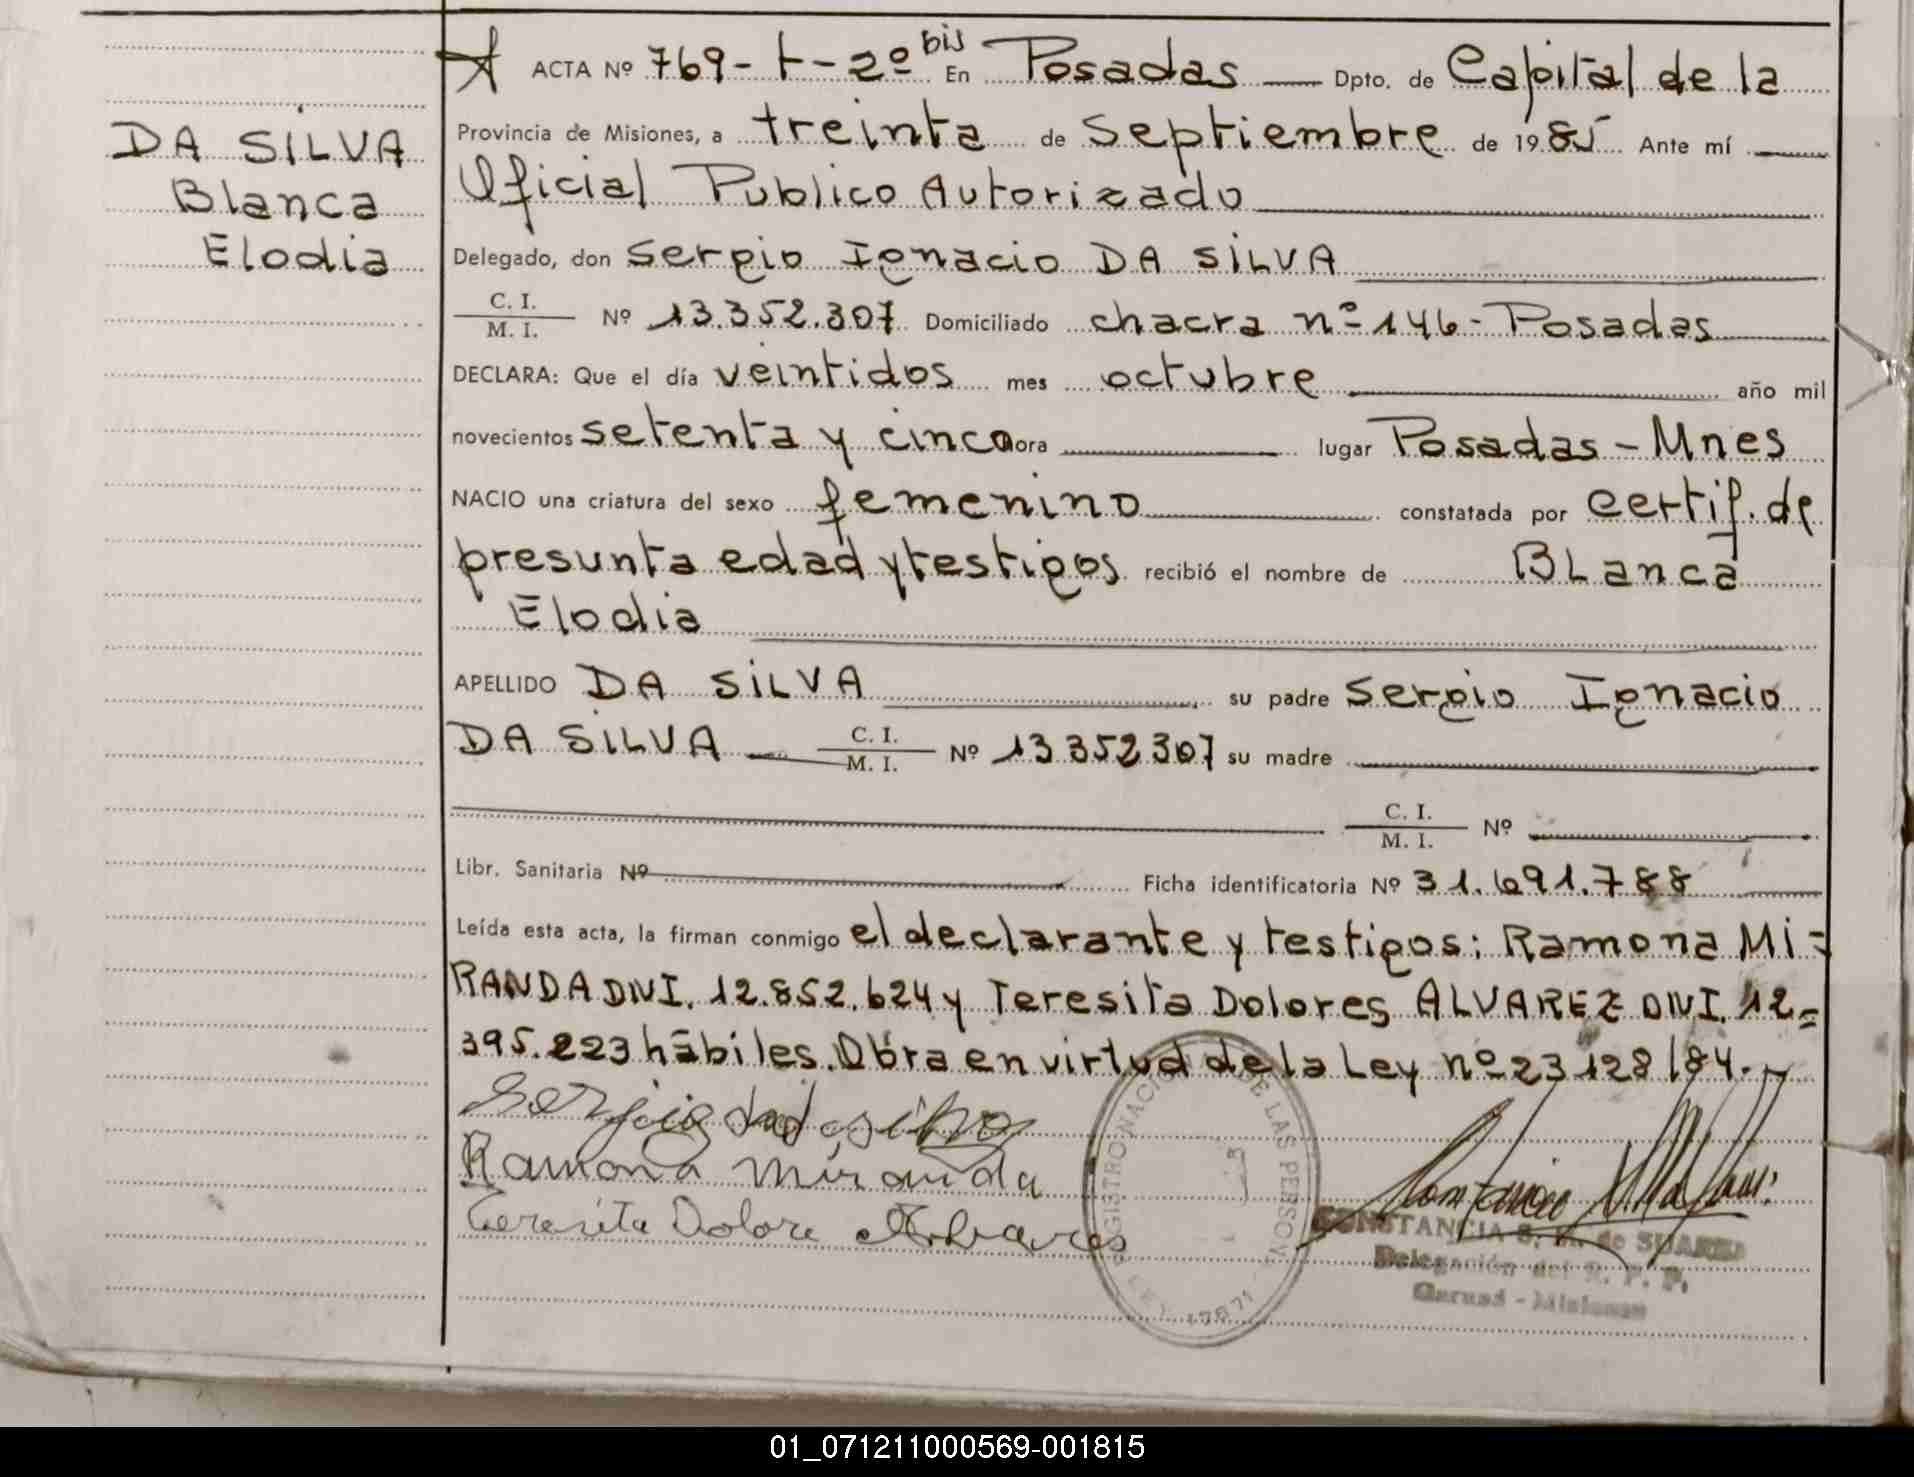 ACTA Nº 769-t-2º bis En Posadas Dpto. de Capital de la
DA SILVA
Blanca
Elodia
Provincia de Misiones, a treinta de septiembre de 1985 Ante mí
Oficial Publico Autorizado
Delegado, don Sergio Ignacio DA SILVA
C. I.
M. I. Nº 13.352.307 Domiciliado chacra nº 146 - Posadas
DECLARA: Que el día veintidos mes octubre año mil
novecientos setenta y cinco ora lugar Posadas - Mnes
NACIO una criatura del sexo femenino constatada por certif. de
presunta edad y testigos recibió el nombre de BLanca
Elodia
APELLIDO DA SILVA su padre Sergio Ignacio
DA SILVA C. I.
M. I. Nº 13352307 su madre
C. I.
M. I. Nº
Libr. Sanitaria Nº Ficha identificatoria Nº 31.691.788
Leída esta acta, la firman conmigo el declarante y testigos: Ramona MI=
RANDA DNI. 12.852.624 y Teresita Dolores ALVAREZ DNI. 12=
395.223 hábiles. Obra en virtud de la Ley nº 23128/84.-
Sergio da silva
Ramona Miranda
Teresita Dolore Alvares
REGISTRO NACIONAL DE LAS PERSONAS
LEY 17671
CONSTANCIA S. de SUAREZ
Delegación del R. P. P.
Garupá - Misiones
01_071211000569-001815